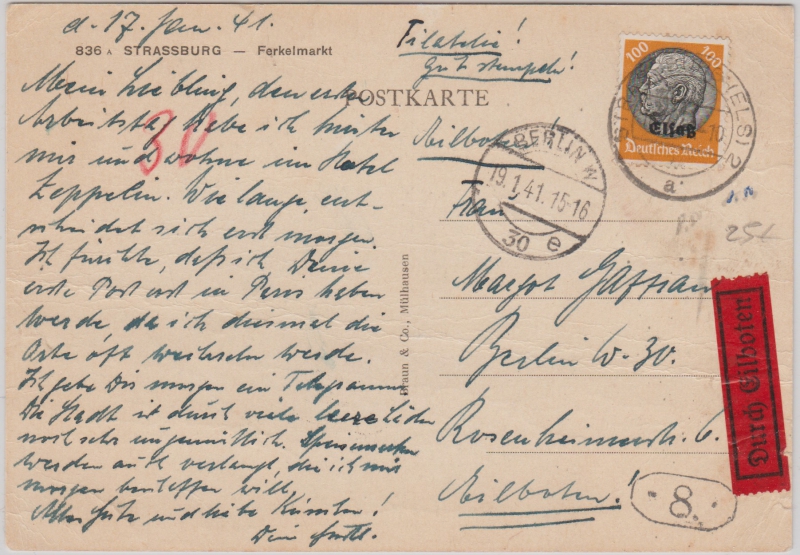 d. 17. Jan. 41.
836 A STRASSBURG — Ferkelmarkt
Filatelie!
Gut stempeln!
POSTKARTE
Mein Liebling, den ersten
Arbeitstag habe ich hinter
mir und wohne im Hotel
Zeppelin. Wie lange ent-
scheidet sich erst morgen.
Ich fürchte, daß ich Deine
erste Post erst in Paris haben
werde, da ich diesmal die
Orte oft wechseln werde.
Ich gebe Dir morgen ein Telegramm
Die Stadt ist durch viele leere Läden
noch sehr ungemütlich. Speisemarken
werden auch verlangt, die ich mir
morgen
will,
Alles Gute und liebe Küsse!
Dein
30
Eilboten!
Frau
Margot
Berlin W. 30.
Rosenheimerstr. 6.
Eilboten!
Braun & Co., Mülhausen
100 100
Elsaß
Deutsches Reich
(ELS) 2
a
BERLIN W
19.1.41.15-16
30 e
25
Durch Eilboten
8